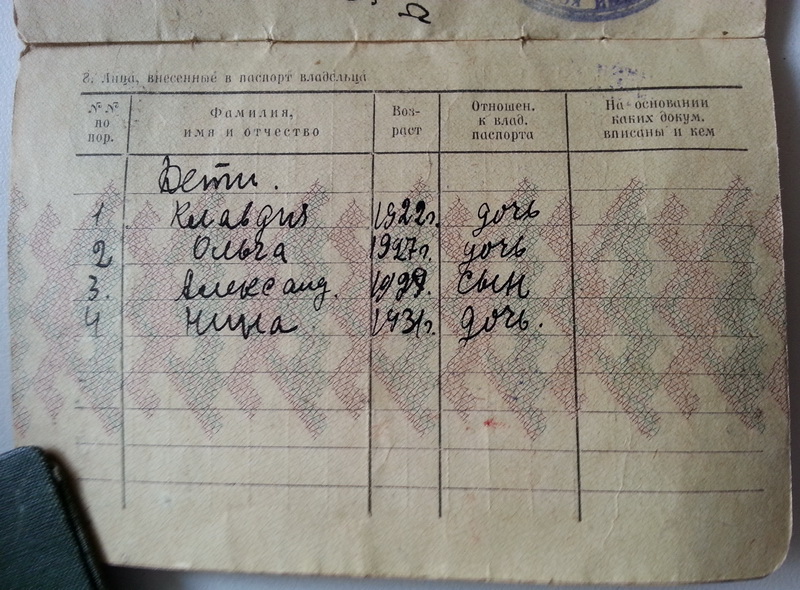 8. Лица, внесенные в паспорт владельца
№ № по пор. Фамилия, имя и отчество Воз-раст Отношен. к влад. паспорта На основании каких докум. вписаны и кем
Дети.
1 Клавдия 1922г. дочь
2 Ольга 1927г. дочь
3. Александ. сын
4 Нина 1931г. дочь.